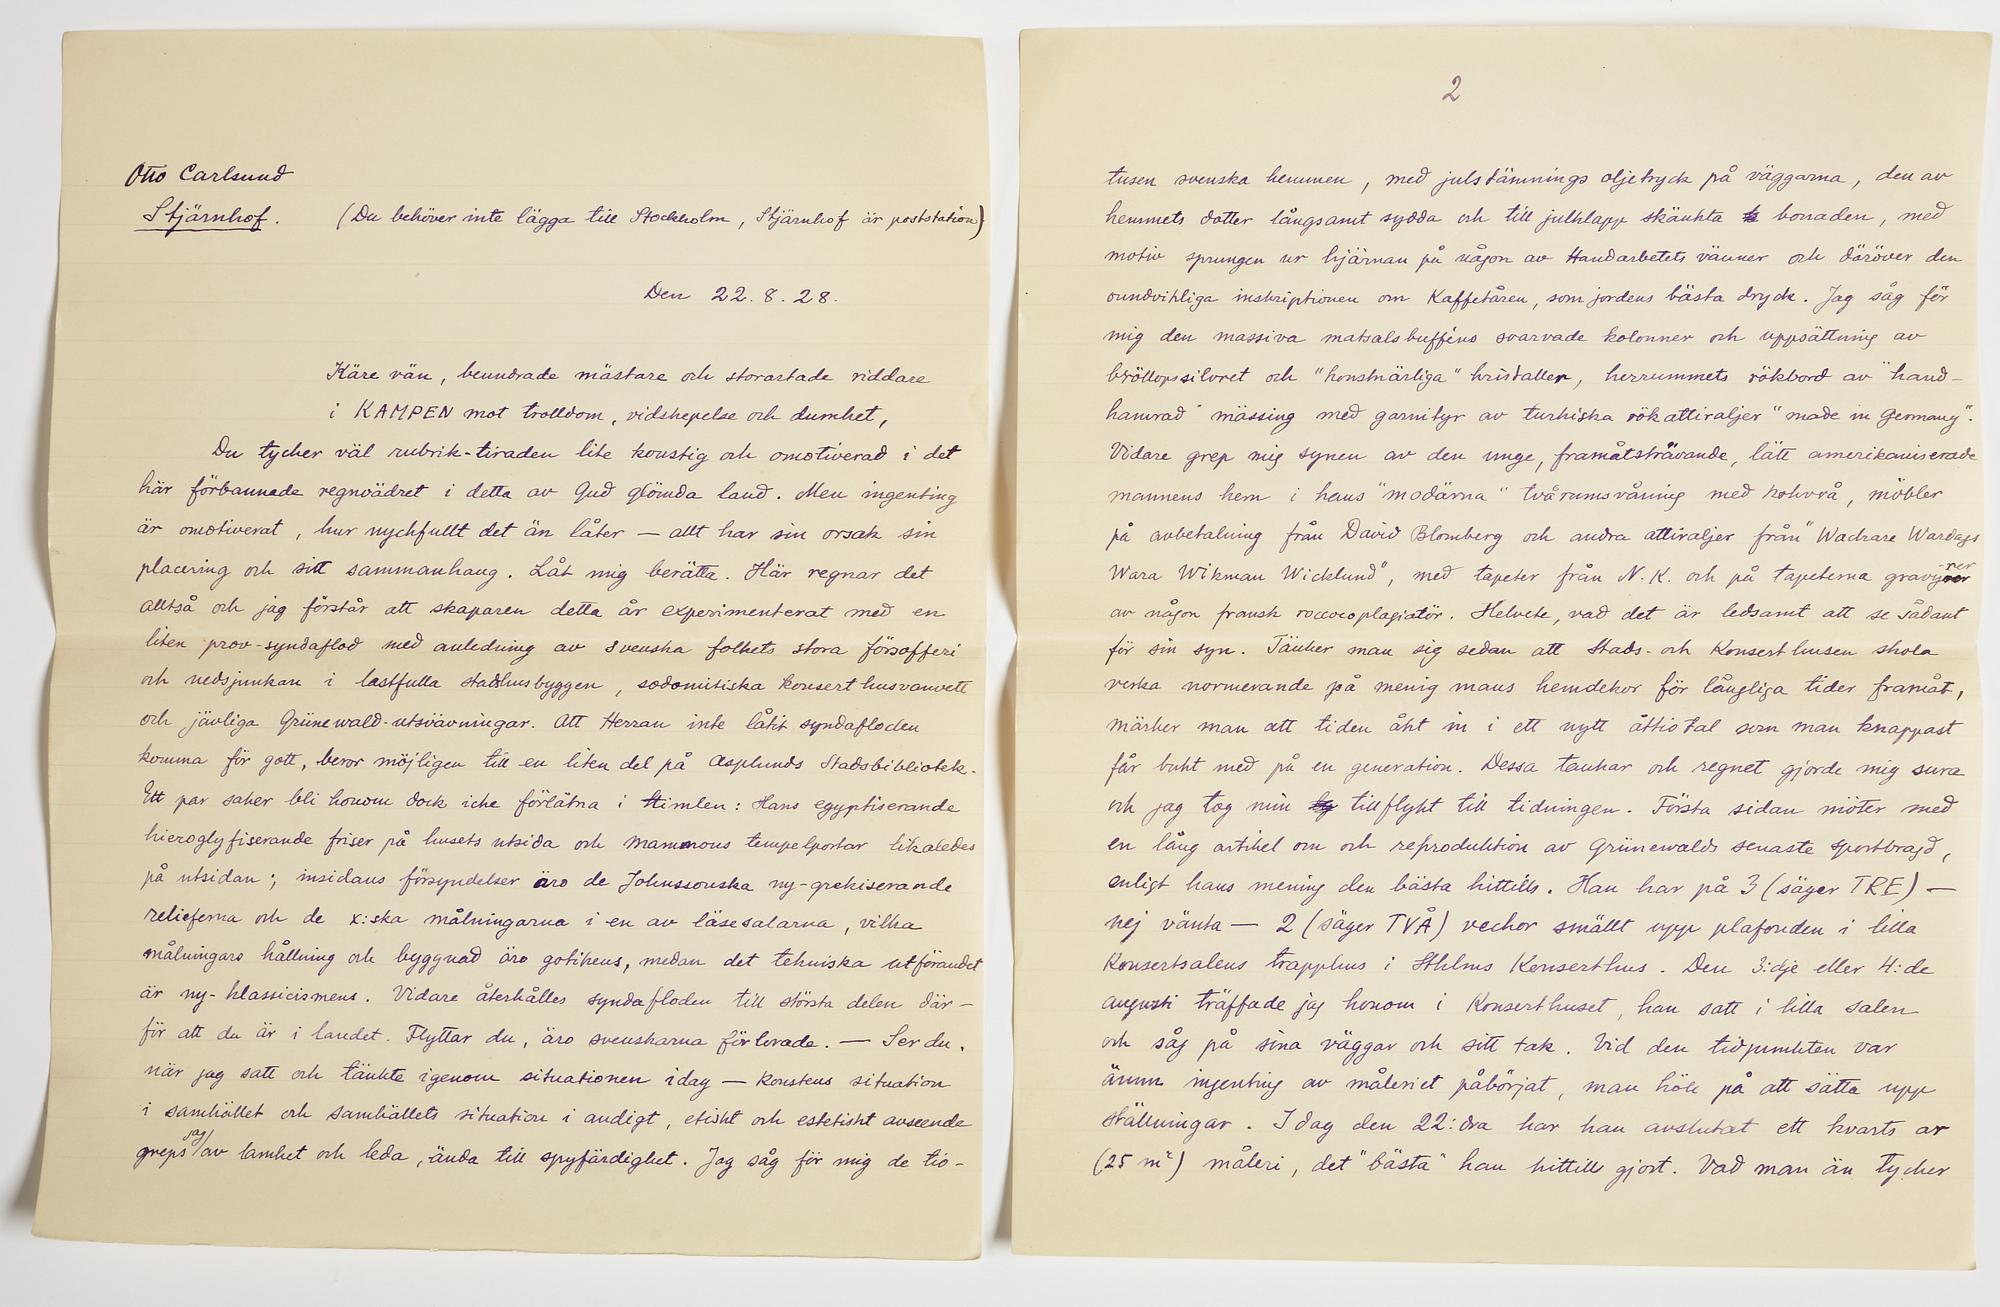 Otto Carlsund
Stjärnhof. (Du behöver inte lägga till Stockholm, Stjärnhof är poststation)
Den 22.8.28.
Käre vän, beundrade mästare och storartade riddare
i KAMPEN mot trolldom, vidskepelse och dumhet,
Du tycker väl rubrik-tiraden lite konstig och omotiverad i det
här förbannade regnvädret i detta av Gud glömda land. Men ingenting
är omotiverat, hur nyckfullt det än låter — allt har sin orsak sin
placering och sitt sammanhang. Låt mig berätta. Här regnar det
alltså och jag förstår att skaparen detta år experimenterat med en
liten prov-syndaflod med anledning av svenska folkets stora försofferi
och nedsjunkan i lastfulla stadshusbyggen, sodomitiska konserthusvanvett
och jävliga Grünewald-utsvävningar. Att Herran inte låtit syndafloden
komma för gott, beror möjligen till en liten del på Asplunds Stadsbibliotek.
Ett par saker bli honom dock icke förlåtna i himlen: Hans egyptiserande
hieroglyfiserande friser på husets utsida och mammons tempelportar likaledes
på utsidan; insidans försyndelser äro de Johnssonska ny-grekiserande
relieferna och de x:ska målningarna i en av läsesalarna, vilka
målningars hållning och byggnad äro gotikens, medan det tekniska utförandet
är ny-klassicismens. Vidare återhålles syndafloden till största delen där-
för att du är i landet. Flyttar du, äro svenskarna förlorade. — Ser du,
när jag satt och tänkte igenom situationen idag — konstens situation
i samhället och samhällets situation i andligt, etiskt och estetiskt avseende
greps jag av lamhet och leda, ända till spyfärdighet. Jag såg för mig de tio-
2
tusen svenska hemmen, med julstämnings oljetryck på väggarna, den av
hemmets dotter långsamt sydda och till julklapp skänkta bonaden, med
motiv sprungen ur hjärnan på någon av Handarbetets vänner och däröver den
oundvikliga inskriptionen om Kaffetåren, som jordens bästa dryck. Jag såg för
mig den massiva matsalsbufféns svarvade kolonner och uppsättning av
bröllopssilvret och "konstnärliga" kristaller, herrummets rökbord av "hand-
hamrad" mässing med garnityr av turkiska rökattiraljer "made in Germany".
Vidare grep mig synen av den unge, framåtsträvande, lätt amerikaniserade
mannens hem i hans "modärna" tvårumsvåning med kokvrå, möbler
på avbetalning från David Blomberg och andra attiraljer från "Wackrare Wardags
Wara Wikman Wicklund", med tapeter från N.K. och på tapeterna gravyrer
av någon fransk roccocoplagiatör. Helvete, vad det är ledsamt att se sådant
för sin syn. Tänker man sig sedan att Stads- och Konserthusen skola
verka normerande på menig mans hemdekor för långliga tider framåt,
märker man att tiden åkt in i ett nytt åttiotal som man knappast
får bukt med på en generation. Dessa tankar och regnet gjorde mig sura
och jag tog min tillflykt till tidningen. Första sidan möter med
en lång artikel om och reproduktion av Grünewalds senaste sportbragd,
enligt hans mening den bästa hittills. Han har på 3 (säger TRE) —
nej vänta — 2 (säger TVÅ) veckor smällt upp plafonden i lilla
Konsertsalens trapphus i Sthlms Konserthus. Den 3:dje eller 4:de
augusti träffade jag honom i Konserthuset, han satt i lilla salen
och såg på sina väggar och sitt tak. Vid den tidpunkten var
ännu ingenting av måleriet påbörjat, man höll på att sätta upp
ställningar. Idag den 22:dra har han avslutat ett kvarts ar
(25 m²) måleri, det "bästa" han hittills gjort. Vad man än tycker